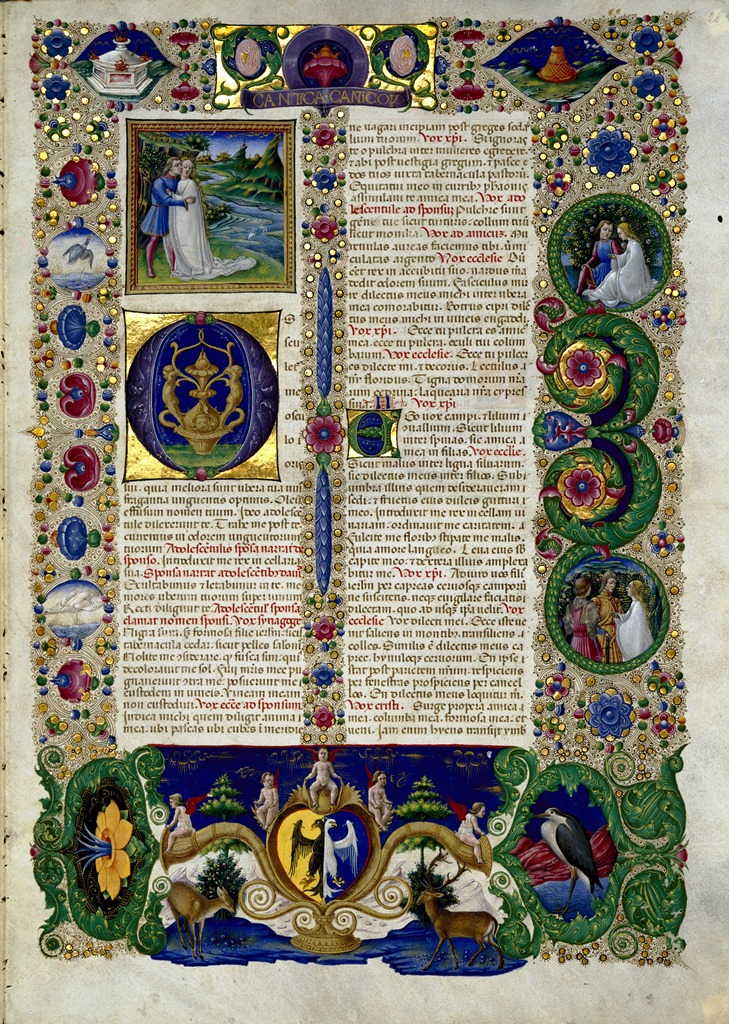 CANTICA CANTICOꝜ
S
scu
let
m
oscu
lo
oris
sui. quia meliora sunt ubera tua uino
fragrantia unguentis optimis. Oleum
effusum nomen tuum. Ideo adolescen
tule dilexerunt te. Trahe me post te
curremus in odorem unguentorum
tuorum Adolescentulis sposa narrat de
sponso. Introduxit me rex in cellaria
sua. Sponsa narrat adolescentib; dauit
Exultabimus et letabimur in te. me
mores uberum tuorum super uinum
Recti diligunt te. Adolescentule sponsa
clamat nomen sponsi. Vox synagoge
Nigra sum. sz formosa filie ierlm. sicut
tabernacula cedar. sicut pelles salomonis
Nolite me considerare. qz fusca sim. quia
decolorauit me sol. Filij mris mee pu
gnauerunt contra me. posuerunt me
custodem in uineis. Vineam meam
non custodiui. Vox eccẽ ad sponsum
Indica michi quem diligit anima mea
ubi pascas ubi cubes i meridie
ne uagari incipiam post greges soda
lium tuorum. Vox xpi. Si ignoras
te o pulchra inter mulieres egredere
et abi post uestigia gregum. et pasce e
dos tuos iuxta tabernacula pastorum.
Equitatui meo in curribz pharaonis
assimilaui te amica mea. Vox ado
lescentule ad sponsuz Pulchre sunt
gene tue sicut turturis. collum tuum
sicut monilia. Vox ad amicuz. Mu
renulas aureas faciemus tibi. uermi
culatas argento. Vox ecclesie Du
esset rex in accubitu suo. nardus mea
dedit odorem suum. Fasciculus mir
re dilectus meus michi inter ubera
mea comorabitur. Botrus cipri dilec
tus meus michi in uineis engaddi.
Vox xpi. Ecce tu pulcra es amica
mea. ecce tu pulcra. oculi tui colum
barum. Vox ecclesie. Ecce tu pulcer
es dilecte mi. et decorus. Lectulus
nr floridus. Tigna domorum nrarum
cedrina. laquearia nra cypres
sina. II Vox xpi
Ego flox campi. et lilium
conuallium. Sicut lilium
inter spinas. sic amica
mea in filias. Vox ecclesie.
Sicut malus inter ligna siluarum.
sic dilectus meus inter filios. Sub
umbra illius quem desideraueram
sedi. et fructus eius dulcis gutturi
meo. Introduxit me rex in cellam ui
nariam. ordinauit me caritatem.
Fulcite me floribz stipate me malis.
quia amore langueo. Leua eius sub
capite meo. et dextera illius amplexa
bitur me. Vox xpi. Adiuro uos filie
ierlm per capreas ceruosqz camporum
ne suscitetis. neqz euigilare faciatis
dilectam. quo ad usqz ipa uelit. Vox
ecclesie Vox dilecti mei. Ecce iste ue
nit saliens in montibz. transiliens
colles. Similis est dilectus meus ca
pree. hynnuloqz ceruorum. En ipse
stat post parietem nrm. respiciens
per fenestras. prospiciens per cancel
los. En dilectus meus loquitur mihi.
Vox cristi. Surge propera amica
mea. columba mea. formosa mea. et
ueni. Iam enim hyems transijt